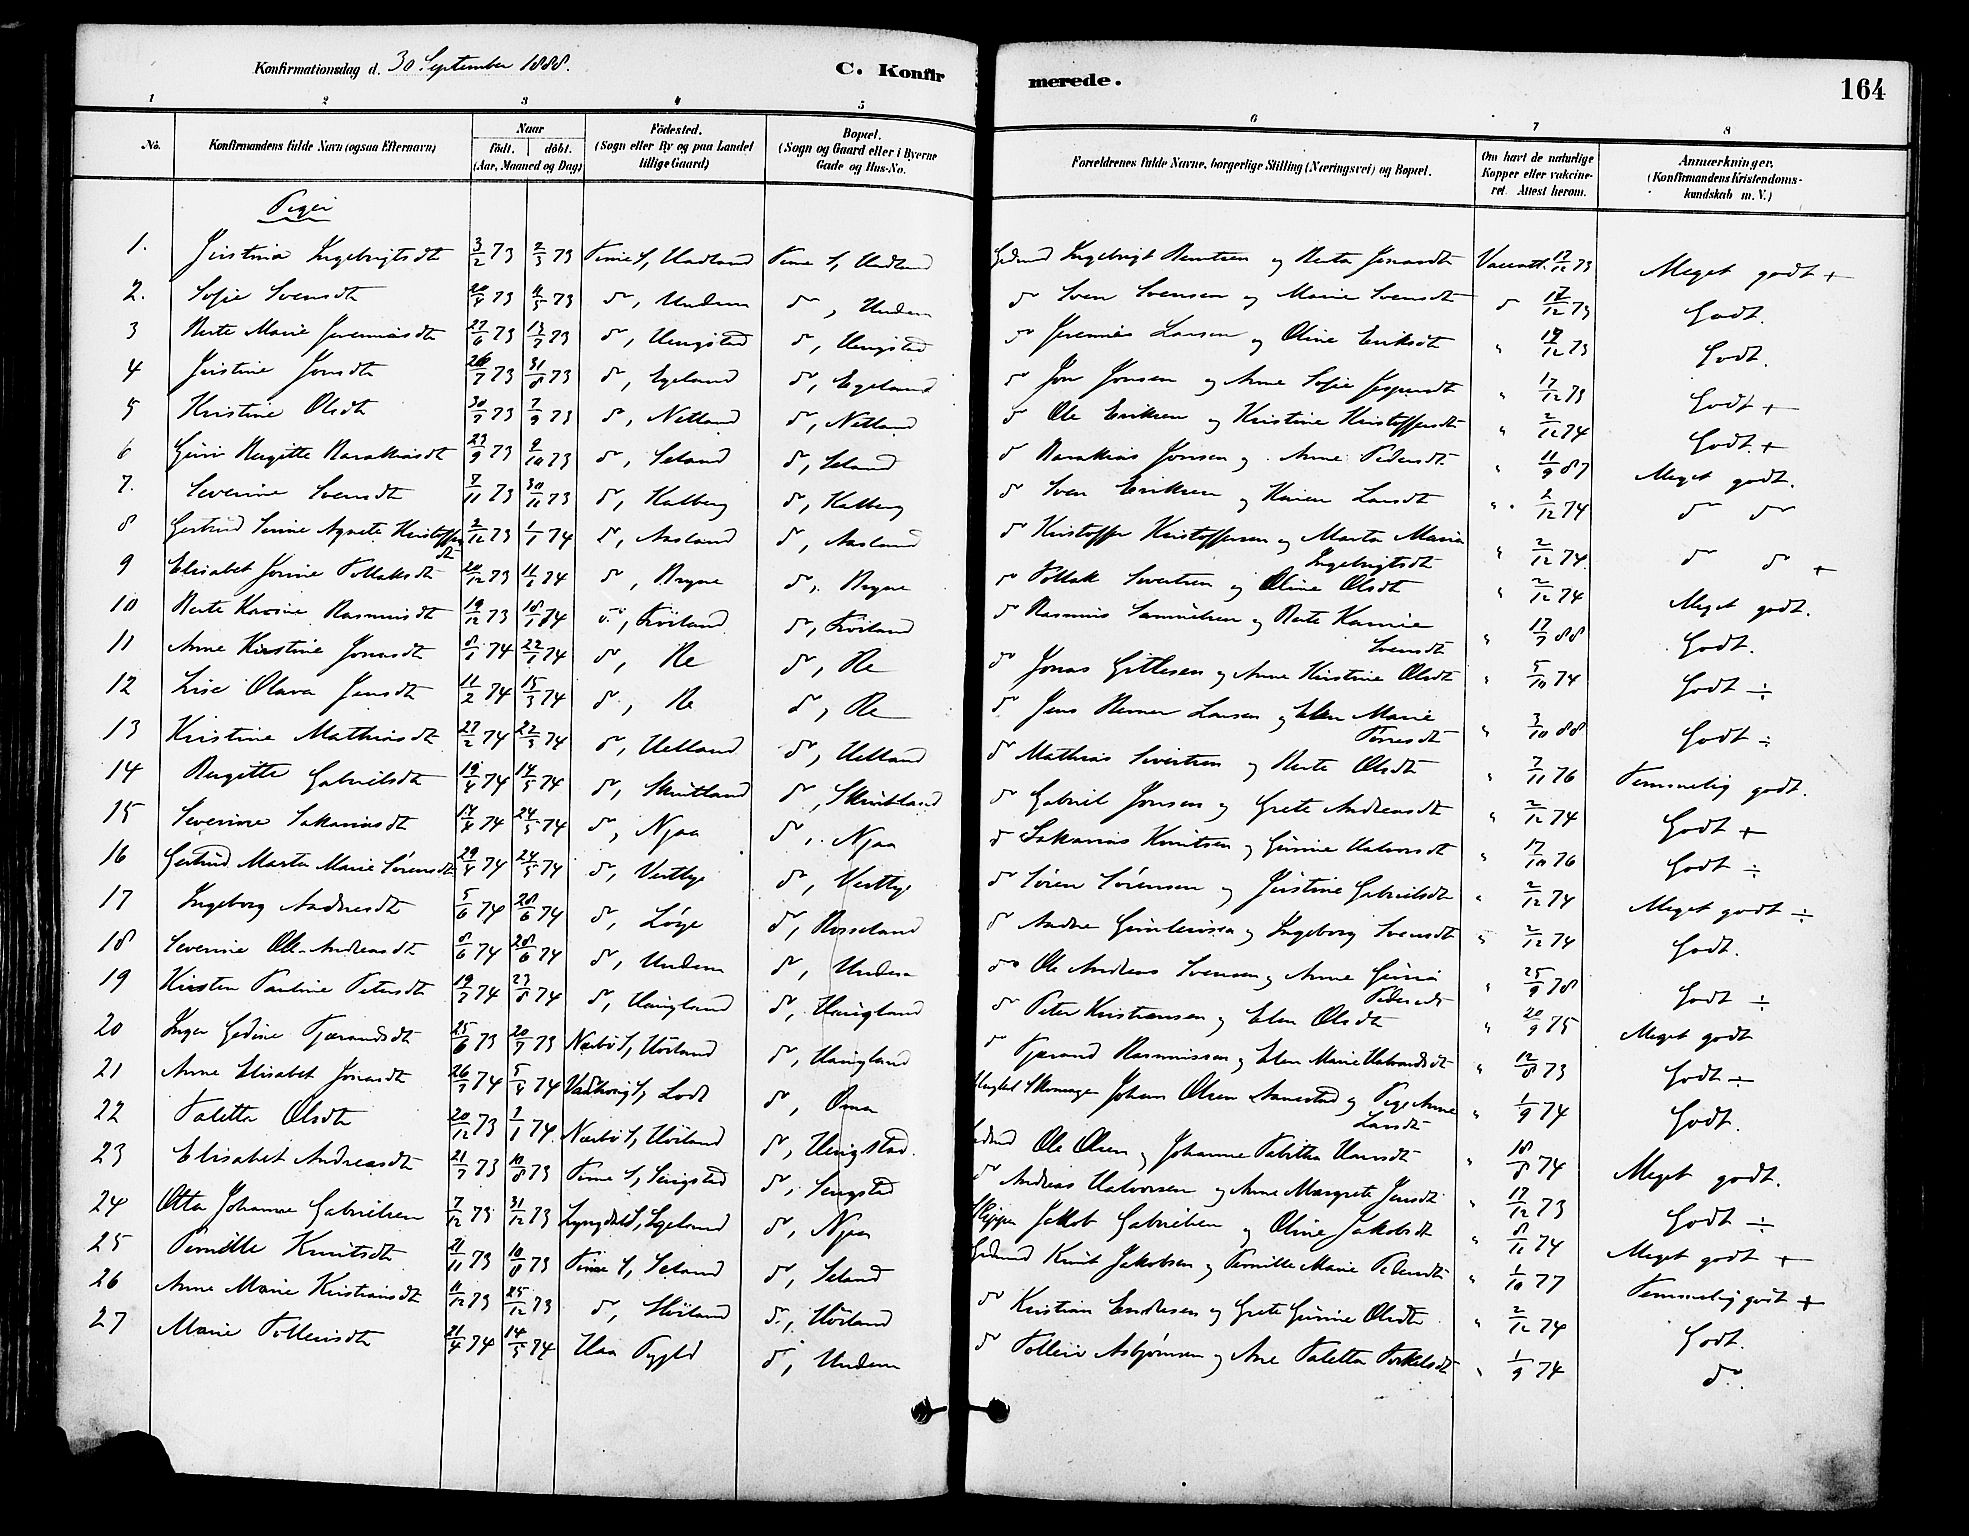 Konfirmationsdag d. 30 September 1888.
C. Konfir
merede.
164
1 2 3 4 5 6 7 8
No. Konfirmandens fulde Navn (ogsaa Efternavn) Naar födt. döbt. (Aar, Maaned og Dag) Födested. (Sogn eller By og paa Landet tillige Gaard) Bopæl. (Sogn og Gaard eller i Byerne Gade og Hus-No. Forældrenes fulde Navne, borgerlige Stilling (Næringsvei) og Bopæl. Om havt de naturlige Kopper eller vakcineret. Attest herom. Anmærkninger. (Konfirmandens Kristendomskundskab m. V.)
Piger
1. Ingebrigtsdt 3/2 73 2/3 73 Time S, Time S, Ingebrigt og Jonasdt 17/12 73 Meget godt +
2. Sofie Svensdt 73 73 do, Undem do, Undem do Sven Svensen og Marie Svensdt 17/12 73 Godt.
3 Berte Marie Jeremiasdt 27/6 73 13/7 73 do, do, do Jeremias Larsen og Oline Eriksdt " 12 73 Godt.
4 Jonsdt 26/7 73 31/8 73 do, Egeland do, Egeland do Jon Jonsen og Anne Sofie " 17/12 73 Godt +
5 Kristine Olsdt 30/7 73 7/9 73 do, Netland do, Netland do Ole Eriksen og Kristine Kristoffersdt " 2/12 74 Godt +
6 Bergitte 23/9 73 9/10 73 do, Seland do, Seland do Jonsen og Anne Pedersdt " 11/9 87 Meget godt.
7. Severine Svensdt 7/11 73 30/11 73 do, Kalberg do, Kalberg do Sven Eriksen og Karen Larsdt " 2/12 74 do do
8 Gertrud Agnete Kristoffersdt 2/12 73 1/1 74 do, Aasland do, Aasland do Kristoffer Kristoffersen og Marta Maria Ingebrigtsdt " 2/12 74. do do +
9 Elisabet Tollaksdt 20/12 73 11/1 74 do, Bryne do, Bryne do Tollak Sivertsen og Oline Olsdt " 2/12 74 Meget godt.
10 Berte Karine Rasmusdt 19/12 73 18/1 84 do, Fröiland do, Fröiland do Rasmus Samuelsen og Berte Karine Svensdt " 17/7 88 Godt.
11 Anne Kirstine Jonasdt 8/1 74 22/1 74 do, Re do, Re do Jonas Gitlesen og Anne Kirstine Olsdt " 5/10 74 Godt ÷
12 Lise Olava Jensdt 11/2 74 15/3 74 do, Re do, Re do Jens Larsen og Elen Marie " 3/10 88 Godt ÷
13 Kristine Mathiasdt 27/2 74 22/3 74 do, do, do Mathias Sivertsen og Berte Olsdt " 7/11 76 Temmelig godt.
14 Bergitte Gabrielsdt 19/4 74 14/5 74 do, Skrutland do, Skrutland do Gabriel Jonsen og Grete Andreasdt " 2/12 74 Godt +
15 Severine Sakariasdt 74 24/5 74 do, Njaa do, Njaa do Sakarias Knutsen og Halvorsdt " 17/10 76 Godt ÷
16 Gertrud Marta Marie Sörensdt 29/4 74 24/5 74 do, Vestlye do, Vestlye do Sören Sörensen og Gabrielsdt " 2/12 74 Meget godt ÷
17 Ingeborg 5/6 74 28/6 74 do, Löge do, Rosseland do og Ingeborg Svensdt " 2/12 74 Godt.
18 Severine Ole-Andreasdt 8/6 74 28/6 74 do, Undem do, Undem do Ole Andreas Svensen og Anne Pedersdt " 25/9 78 Godt ÷
19 Kirsten Pauline Petersdt 19/7 74 23/8 74 do, Haugland do, Haugland do Peter Kristiansen og Elen Olsdt " 20/9 75 Meget godt
20 Inger Gedine Tjærandsdt 25/6 73 20/7 73 Nærbö S, Höiland do, Haugland do Tjærand Rasmussen og Elen Marie " 12/8 73 Godt ÷
21 Anne Elisabet 26/7 74 5/4 74 Lode do, Oma Johan Olsen og Pige Anne Larsdt " 1/9 74 Godt.
22 Taletta Olsdt 20/12 73 1/1 74. Nærbö S, Höiland do, Ole Olsen og Johanne Tabitha Hansdt " 18/8 74 Meget godt.
23 Elisabet Andreasdt 21/7 73 10/8 73 Time S, do, do Andreas Halvorsen og Anne Margrete Jensdt " 17/12 73 Godt ÷
24 Otta Johanne Gabrielsen 7/12 73 31/12 73 Lyngdal S, do, Njaa Skipper Jakob Gabrielsen og Oline Jakobsdt " 8/11 74 Meget godt +
25 Pernille Knutsdt 21/11 73 10/8 73 Time S, Seland do, Seland Knut Jakobsen og Pernille Marie Pedersdt " 1/10 77 Temmelig godt +
26 Anne Marie Kristiansdt 11/12 73 25/12 73 do, Höiland do, Höiland do Kristian Endresen og Grete Olsdt " 2/12 74 Godt.
27 Marie 21/4 74 14/5 74 do, Undem do Asbjörnsen og Ane Taletta Torkelsdt " 1/9 74 do.